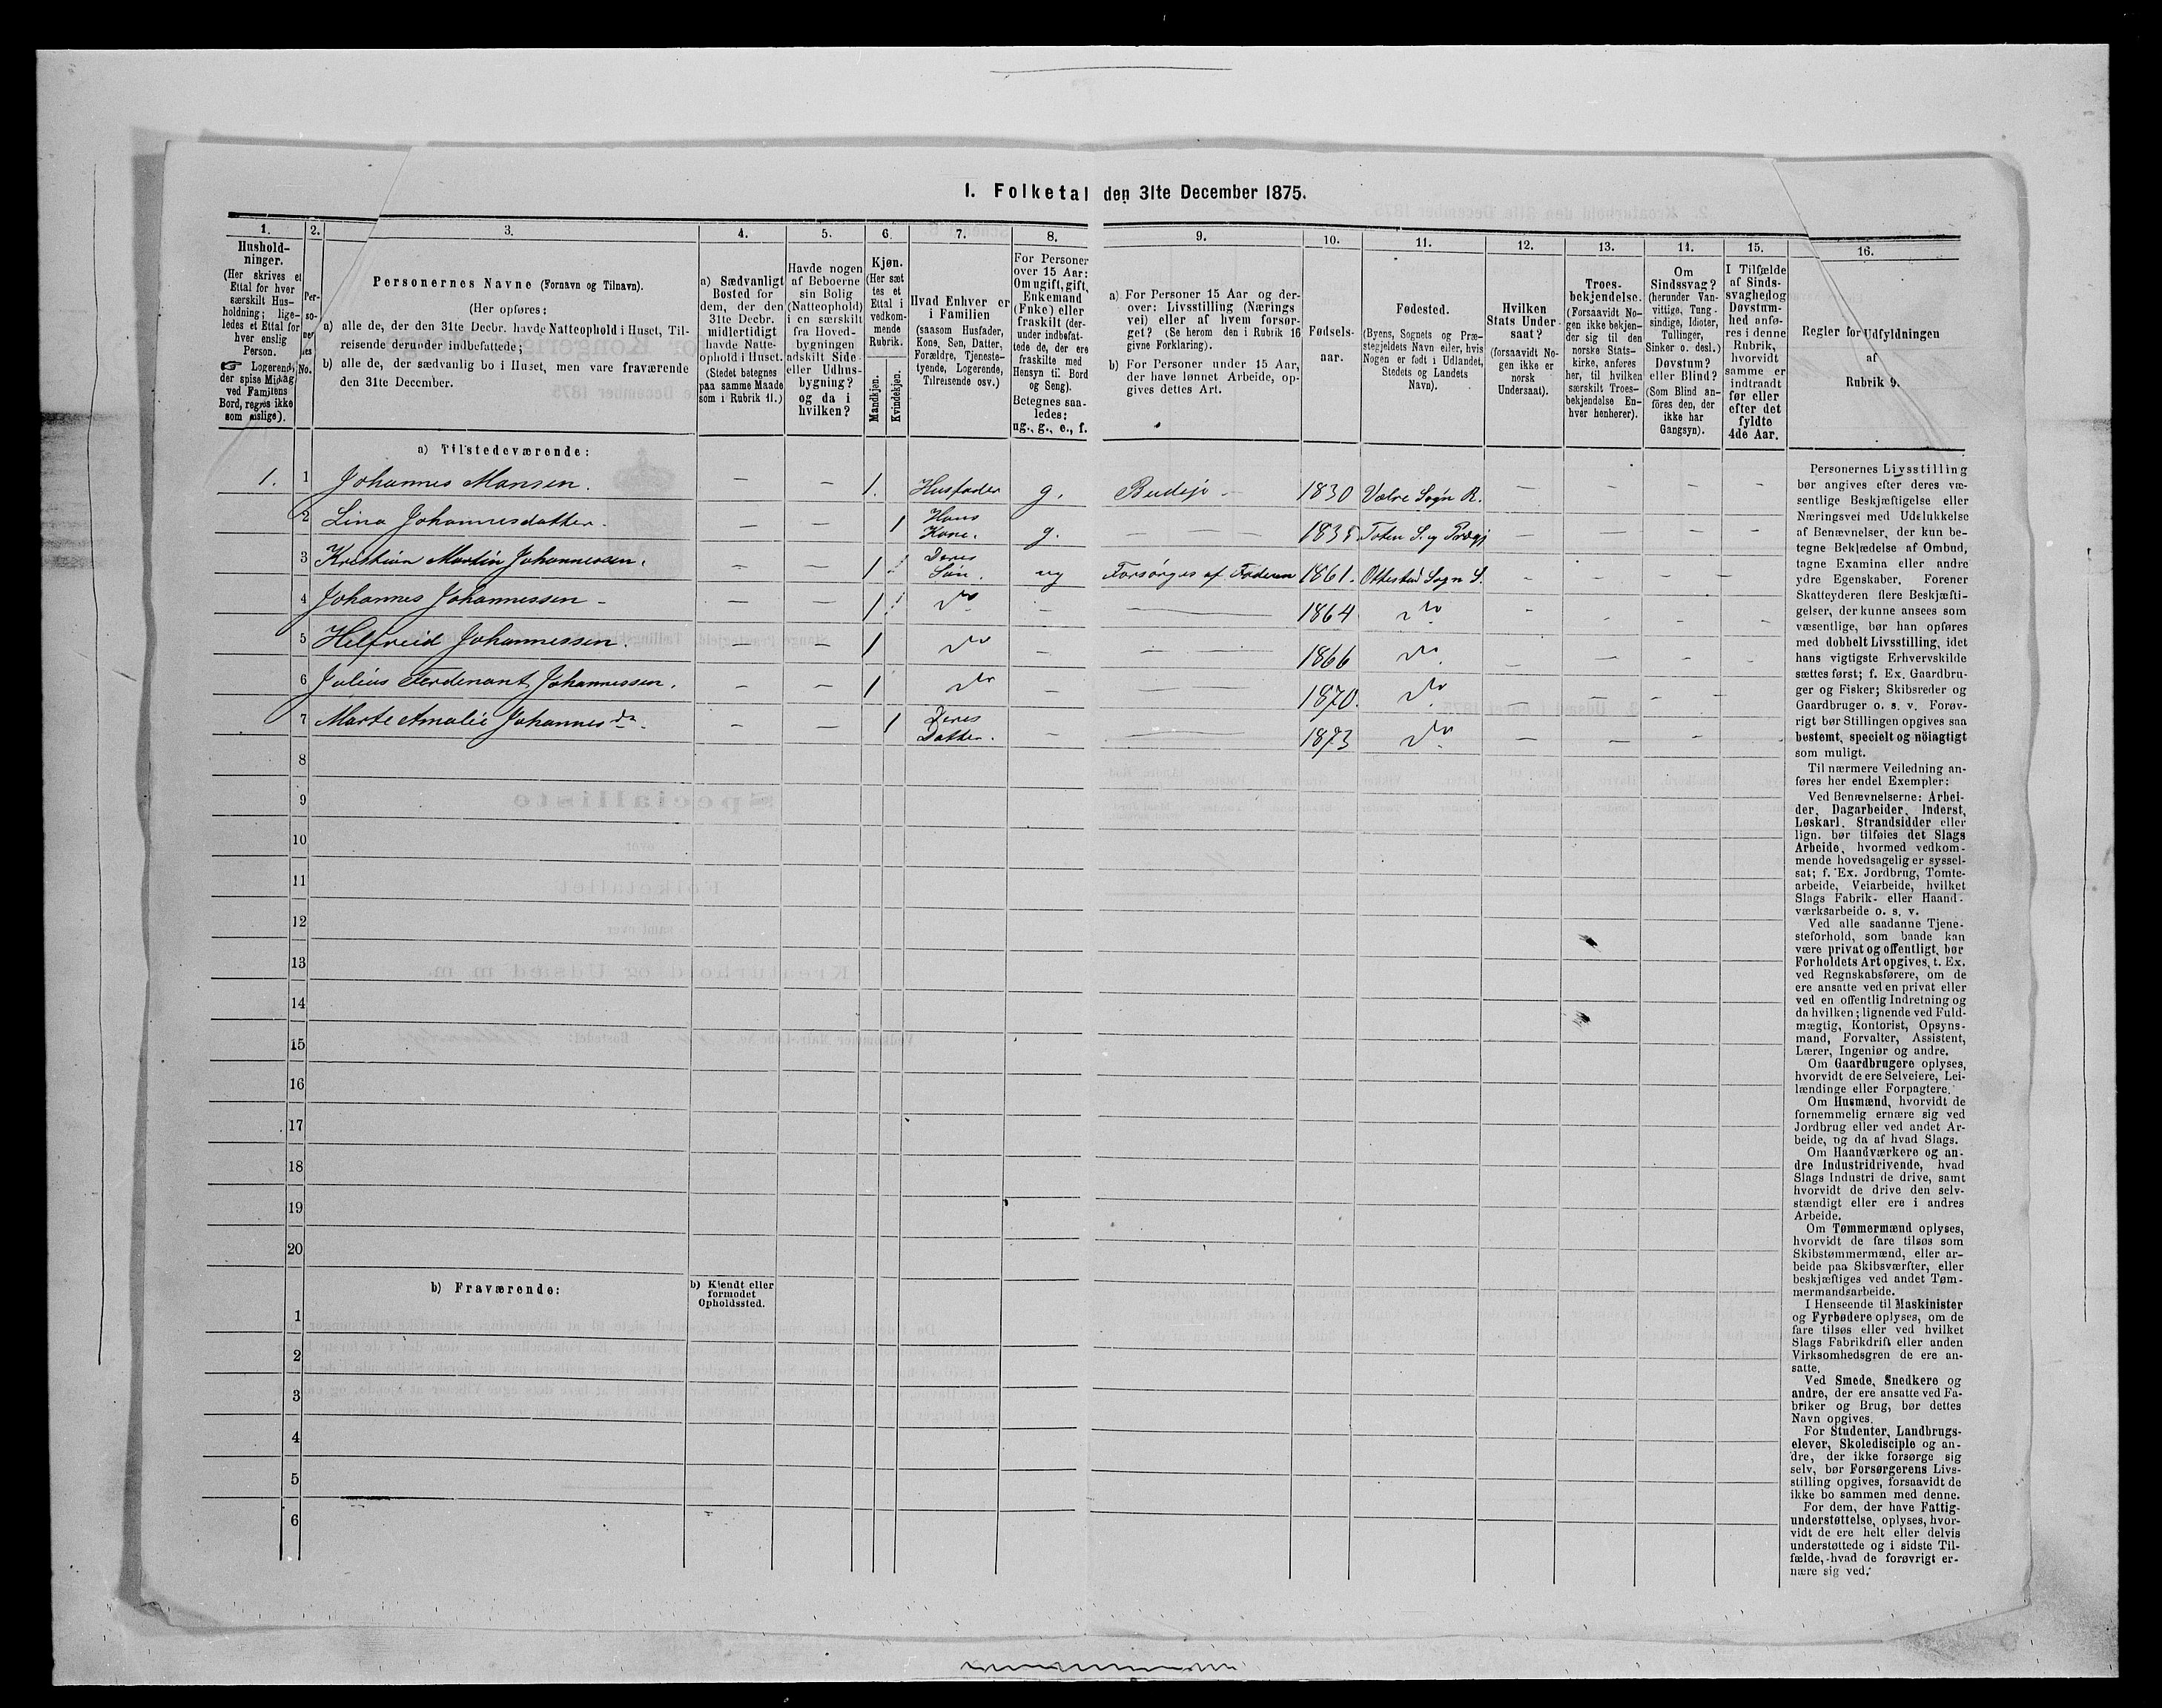 1. Folketal den 31te December 1875.
1. 2. 3. 4. 5. 6. 7. 8. 9. 10. 11. 12. 13. 14. 15. 16.
Hushold-
ninger.
(Her skrives et
Ettal for hver
særskilt Hus-
holdning; lige-
ledes et Ettal for
hver enslig
Person.
☞ Logerende,
der spise Middag
ved Familiens
Bord, regnes ikke
som enslige).
Per-
so-
ner-
nes
No.
Personernes Navne (Fornavn og Tilnavn).
(Her opføres:
a) alle de, der den 31te Decbr. havde Natteophold i Huset, Til-
reisende derunder indbefattede;
b) alle de, der sædvanlig bo i Huset, men vare fraværende
den 31te December.
a) Sædvanligt
Bosted for
dem, der den
31te Decbr.
midlertidigt
havde Natte-
ophold i Huset.
(Stedet betegnes
paa samme Maade
som i Rubrik 11.)
Havde nogen
af Beboerne
sin Bolig
(Natteophold)
i en særskilt
fra Hoved-
bygningen
adskilt Side-
eller Udhus-
bygning?
og da i
hvilken?
Kjøn.
(Her sæt
tes et
Ettal i
vedkom-
mende
Rubrik.
Mandkjøn.
Kvindekjøn.
Hvad Enhver er
i Familien
(saasom Husfader,
Kone, Søn, Datter,
Forældre, Tjeneste-
tyende, Logerende,
Tilreisende osv.)
For Personer
over 15 Aar:
Om ugift, gift,
Enkemand
(Enke) eller
fraskilt (der-
under indbefat-
tede de, der ere
fraskilte med
Hensyn til Bord
og Seng).
Betegnes saa-
ledes:
ug., g., e., f.
a) For Personer 15 Aar og der-
over: Livsstilling (Nærings
vei) eller af hvem forsør-
get? (Se herom den i Rubrik 16
givne Forklaring).
b) For Personer under 15 Aar,
der have lønnet Arbeide, op-
gives dettes Art.
Fødsels-
aar.
Fødested.
(Byens, Sognets og Præ-
stegjeldets Navn eller, hvis
Nogen er født i Udlandet,
Stedets og Landets
Navn).
Hvilken
Stats Under-
saat?
(forsaavidt No-
gen ikke er
norsk
Undersaat).
Troes-
bekjendelse.
(Forsaavidt No-
gen ikke bekjen-
der sig til den
norske Stats-
kirke, anføres
her, til hvilken
særskilt Troes-
bekjendelse En-
hver henhører).
Om
Sindssvag?
(herunder Van-
vittige, Tung-
sindige, Idioter,
Tullinger,
Sinker o. desl.)
Døvstum?
eller Blind?
(Som Blind an-
føres den, der
ikke har
Gangsyn).
I Tilfælde
af Sinds-
svaghed og
Døvstum-
hed anfø-
res i denne
Rubrik,
hvorvidt
samme er
indtraadt
før eller
efter det
fyldte
4de Aar.
Regler for Udfyldningen
af
Rubrik 9.
a) Tilstedeværende:
1. 1 Johannes Mansen. — — 1. Husfader g. 1830 — — — —
2 Lina Johannesdatter. — — 1 Hans Kone. g. — Toten S. og — — — —
3 Kristian Martin Johannessen. — — 1 Deres Søn. ug Forsørges af Faderen 1861. Ottestad Sogn S. — — — —
4 Johannes Johannessen — — — 1 do — — 1864 do — — — —
5 Helfreid Johannessen. — — 1 do — — 1866 do — — — —
6 Julius Ferdenant Johannessen. — — 1 do — — 1870. do — — — —
7 Marte Amalie Johannesdr. — — 1 Deres Datter. — — 1873 do — — — —
8
9
10
11
12
13
14
15
16
17
18
19
20
b) Fraværende:
b) Kjendt eller
formodet
Opholdssted.
1
2
3
4
5
6
Personernes Livsstilling
bør angives efter deres væ-
sentlige Beskjæftigelse eller
Næringsvei med Udelukkelse
af Benævnelser, der kun be-
tegne Beklædelse af Ombud,
tagne Examina eller andre
ydre Egenskaber. Forener
Skatteyderen flere Beskjæfti-
gelser, der kunne ansees som
væsentlige, bør han opføres
med dobbelt Livsstilling, idet
hans vigtigste Erhvervskilde
sættes først; f. Ex. Gaardbru-
ger og Fisker; Skibsreder og
Gaardbruger o. s. v. Forøv-
rigt bør Stillingen opgives saa
bestemt, specielt og nöiagtigt
som muligt.
Til nærmere Veiledning an-
føres her endel Exempler:
Ved Benævnelserne: Arbei-
der, Dagarbeider, Inderst,
Løskarl, Strandsidder eller
lign. bør tilføies det Slags
Arbeide, hvormed vedkom-
mende hovedsagelig er syssel-
sat; f. Ex. Jordbrug, Tomte-
arbeide, Veiarbeide, hvilket
Slags Fabrik- eller Haand-
værksarbeide o. s. v.
Ved alle saadanne Tjene-
steforhold, som baade kan
være privat og offentligt, bør
Forholdets Art opgives, t. Ex.
ved Regnskabsførere, om de
ere ansatte ved en privat eller
ved en offentlig Indretning og
da hvilken; lignende ved Fuld-
mægtig, Kontorist, Opsyns-
mand, Forvalter, Assistent,
Lærer, Ingeniør og andre.
Om Gaardbrugere oplyses,
hvorvidt de ere Selveiere, Lei-
lændinge eller Forpagtere.
Om Husmænd, hvorvidt de
fornemmelig ernære sig ved
Jordbrug eller ved andet Ar-
beide, og da af hvad Slags.
Om Haandværkere og an-
dre Industridrivende, hvad
Slags Industri de drive, samt
hvorvidt de drive den selv-
stændigt eller ere i andres
Arbeide.
Om Tømmermænd oplyses,
hvorvidt de fare tilsøs som
Skibstømmermænd, eller ar-
beide paa Skibsværfter, eller
beskjæftiges ved andet Tøm-
mermandsarbeide.
I Henseende til Maskinister
og Fyrbødere oplyses, om de
fare tilsøs eller ved hvilket
Slags Fabrikdrift eller anden
Virksomhedsgren de ere an-
satte.
Ved Smede, Snedkere og
andre, der ere ansatte ved Fa-
briker og Brug, bør dettes
Navn opgives.
For Studenter, Landbrugs-
elever, Skoledisciple og an-
dre, der ikke forsørge sig
selv, bør Forsørgerens Livs-
stilling opgives, forsaavidt de
ikke bo sammen med denne.
For dem, der have Fattig-
understøttelse, oplyses, hvor-
vidt de ere helt eller delvis
understøttede og i sidste Til-
fælde, hvad de forøvrigt er-
nære sig ved.